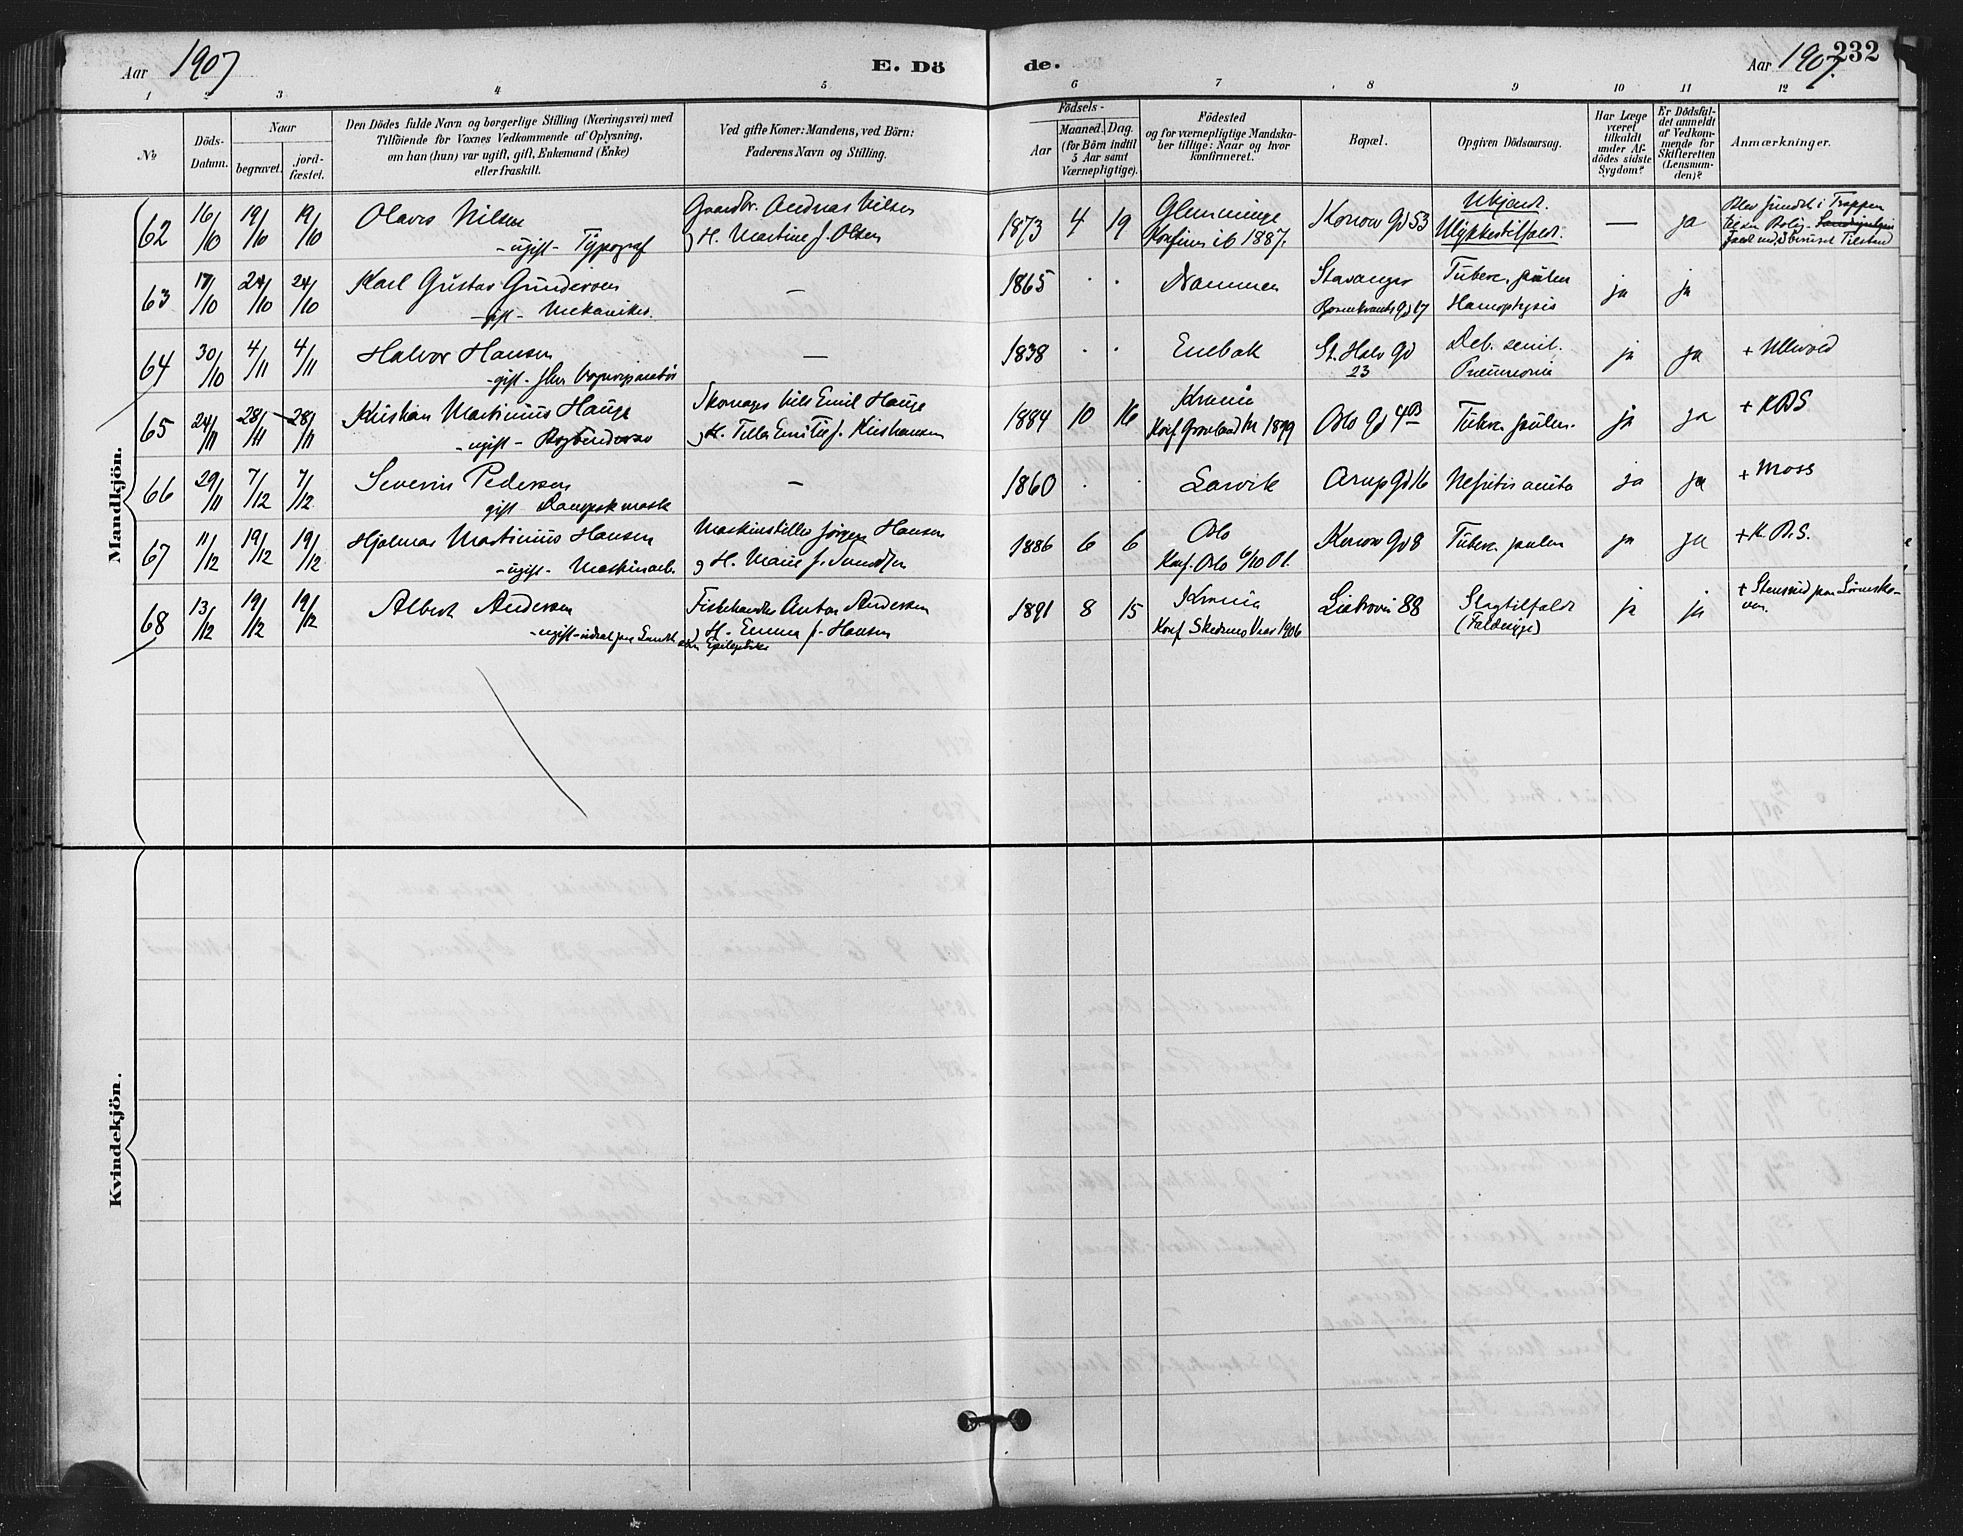 Aar 1907
E. Dö
de.
Aar 1907.
232
1 2 3 4 5 6 7 8 9 10 11 12
No
Döds-
Datum.
Naar
begravet.
jord-
fæstet.
Den Dödes fulde Navn og borgerlige Stilling (Næringsvei) med
Tilföiende for Voxnes Vedkommende af Oplysning,
om han (hun) var ugift, gift, Enkemand (Enke)
eller fraskilt.
Ved gifte Koner: Mandens, ved Börn:
Faderens Navn og Stilling.
Födsels-
Aar
Maaned. Dag.
(for Börn indtil
5 Aar samt
Værnepligtige).
Födested
og for værnepligtige Mandska-
ber tillige: Naar og hvor
konfirmeret.
Bopæl.
Opgiven Dödsaarsag.
Har Læge
været
tilkaldt
under Af-
dödes sidste
Sygdom?
Er Dödsfal-
det anmeldt
af Vedkom-
mende for
Skifteretten
(Lensman-
den)?
Anmærkninger.
Mandkjön.
62 16/10 19/10 19/10 Olaves Nilsen
- ugift - Typograf
Gaardbr. Andreas Nilsen
og H. Martine f. Olsen
1873 4 19 Glemminge
Konfirm ib 1887.
Korvov Gd 53
Ubjendt.
Ulykkestilfælde.
— ja
Blev fundet i Trappen
63 17/10 24/10 24/10 Karl Gustav Gundersen
- gift - Mekaniker.
—
1865 . . Drammen
Stavanger
Rosenkrantz Gd 17
Tuberc. pulm
Hæmoptysis
ja ja
64 30/10 4/11 4/11 Halvor Hansen
- gift -
—
1838 . . Enebak
St. Halv Gd
23
Deb. senil.
Pneumonia
ja ja + Ullevold
65 24/11 28/11 28/11 Kristian Martinius Hauge
- ugift - Bogbindersv
Skomager Nils Emil Hauge
1884 10 16 Krania
Konf Grønland Kr 1899
Oslo Gd 4B
Tuberc. pulm.
ja ja + KBS
66 29/11 7/12 7/12 Severin Pedersen
gift -
—
1860 . . Larvik
Arup Gd 16
Nefritis acuta
ja ja + Moss
67 11/12 19/12 19/12 Hjalmar Martinius Hansen
- ugift - Maskinarb.
Maskinstiller Jörgen Hansen
og H. Marie f.
1886 6 6 Oslo
Konf. Oslo 6/10 01.
Korvov Gd 8
Tuberc. pulm
ja ja + K.B.S.
68 13/12 19/12 19/12 Albert Andersen
- ugift -
Fiskehandler Anton Andersen
og H. Emma f. Hansen
Epileptiker
1891 8 15 Krania
1906
88
Slagtilfælde
(Faldesyge)
ja ja
Kvindekjön.